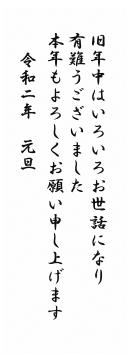 旧年中はいろいろお世話になり
有難うございました
本年もよろしくお願い申し上げます
令和二年　元旦